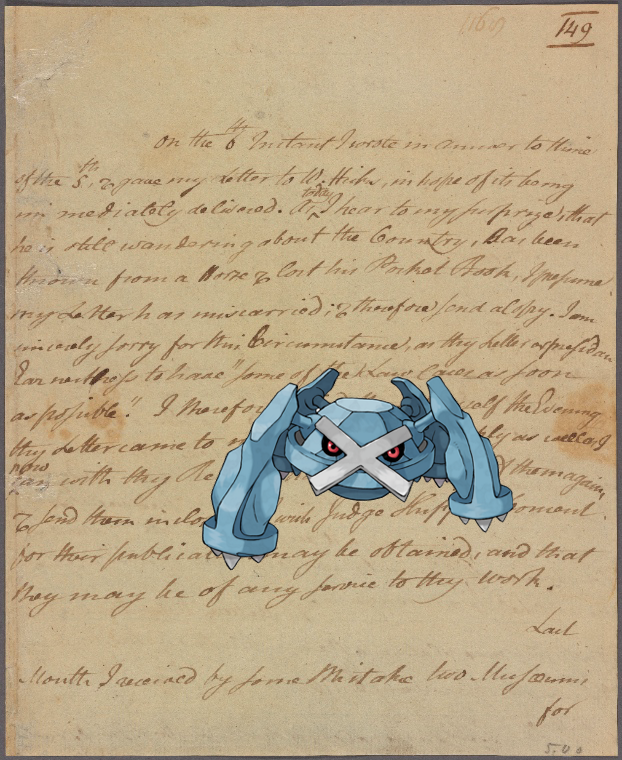 (160)
149
On the 6th Instant I wrote in answer to thine
of the 5th, & gave my Letter to W. Hicks, in hope of its being
immediately delivered. today I hear to my surprize, that
he is still wandering about the Country, has been
thrown from a Horse & lost his Pocket Book, I presume
my Letter has miscarried; & therefore send a Copy. I am
sincerely sorry for this Circumstance, as thy Letter
Earnestness to have "some of the Law Cases as soon
as possible". I the Evening
thy Letter came to as well as I
now can with thy them again,
& send them Judge
for their publica may be obtained, and that
they may be of any service to thy work.
Last
Month I received by some Mistake two Museums
for